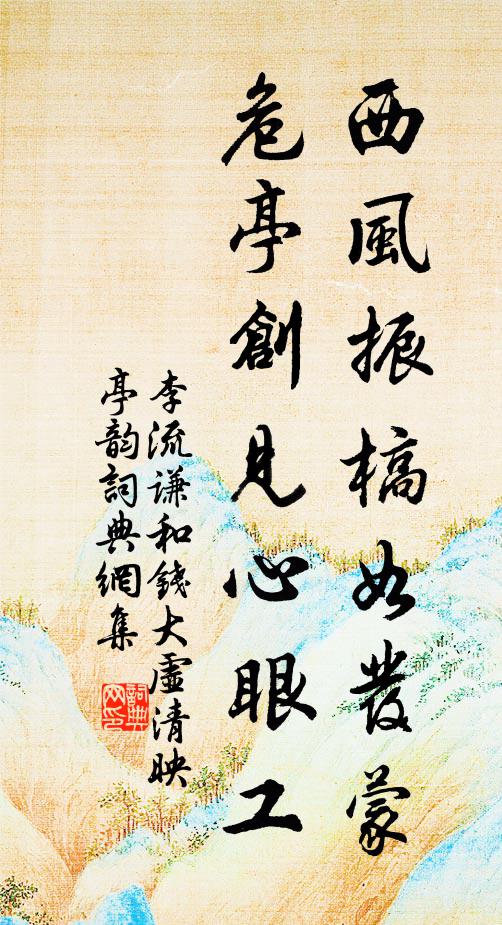 西風振槁如發蒙
危亭創見心眼工
李流谦和錢大虛清映
亭韵詞典網集
詞典網印